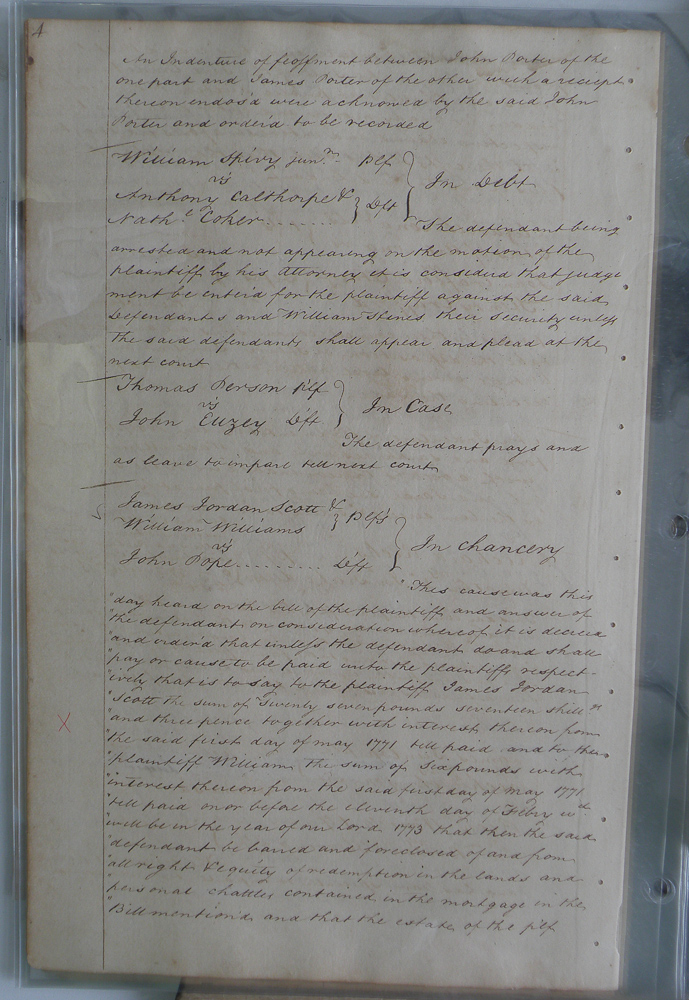 4
An Indenture of feoffment between John Porter of the
one part and James Porter of the other with a receipt
thereon endos'd were acknowed by the said John
Porter and order'd to be recorded
William Spivy junr Plf
vs
In Debt
Anthony Calthorpe &
Nathl Coker ........ } Dft
The defendant being
arrested and not appearing on the motion of the
plaintiff by his attorney it is considrd that judge
ment be enter'd for the plaintiff against the said
Defendants and William their security unless
the said defendants shall appear and plead at the
next court
Thomas Person Plf
vs
In Case
John Euzey Dft
The defendant prays and
as leave to imparl till next court
James Jordan Scott &
William Williams } Plfs
vs
In Chancery
John Pope .......... Dft
"This cause was this
"day heard on the bill of the plaintiff and answer of
"the defendant on consideration whereof it is decreed
"and order'd that unless the defendant do and shall
"pay or cause to be paid unto the plaintiffs respect-
"ively that is to say to the plaintiff James Jordan
"Scott the sum of Twenty seven pounds seventeen shills
"and three pence together with interest thereon from
"the said first day of may 1771 till paid and to the
"plaintiff William the sum of six pounds with
"interest thereon from the said first day of may 1771
"till paid on or before the eleventh day of Febry wch
"will be in the year of our Lord 1773 that then the said
"defendant be bared and foreclosed of and from
"all right & equity of redemption in the lands and
"personal chattles contained in the mortgage in the
"Bill mention'd and that the estate of the plf